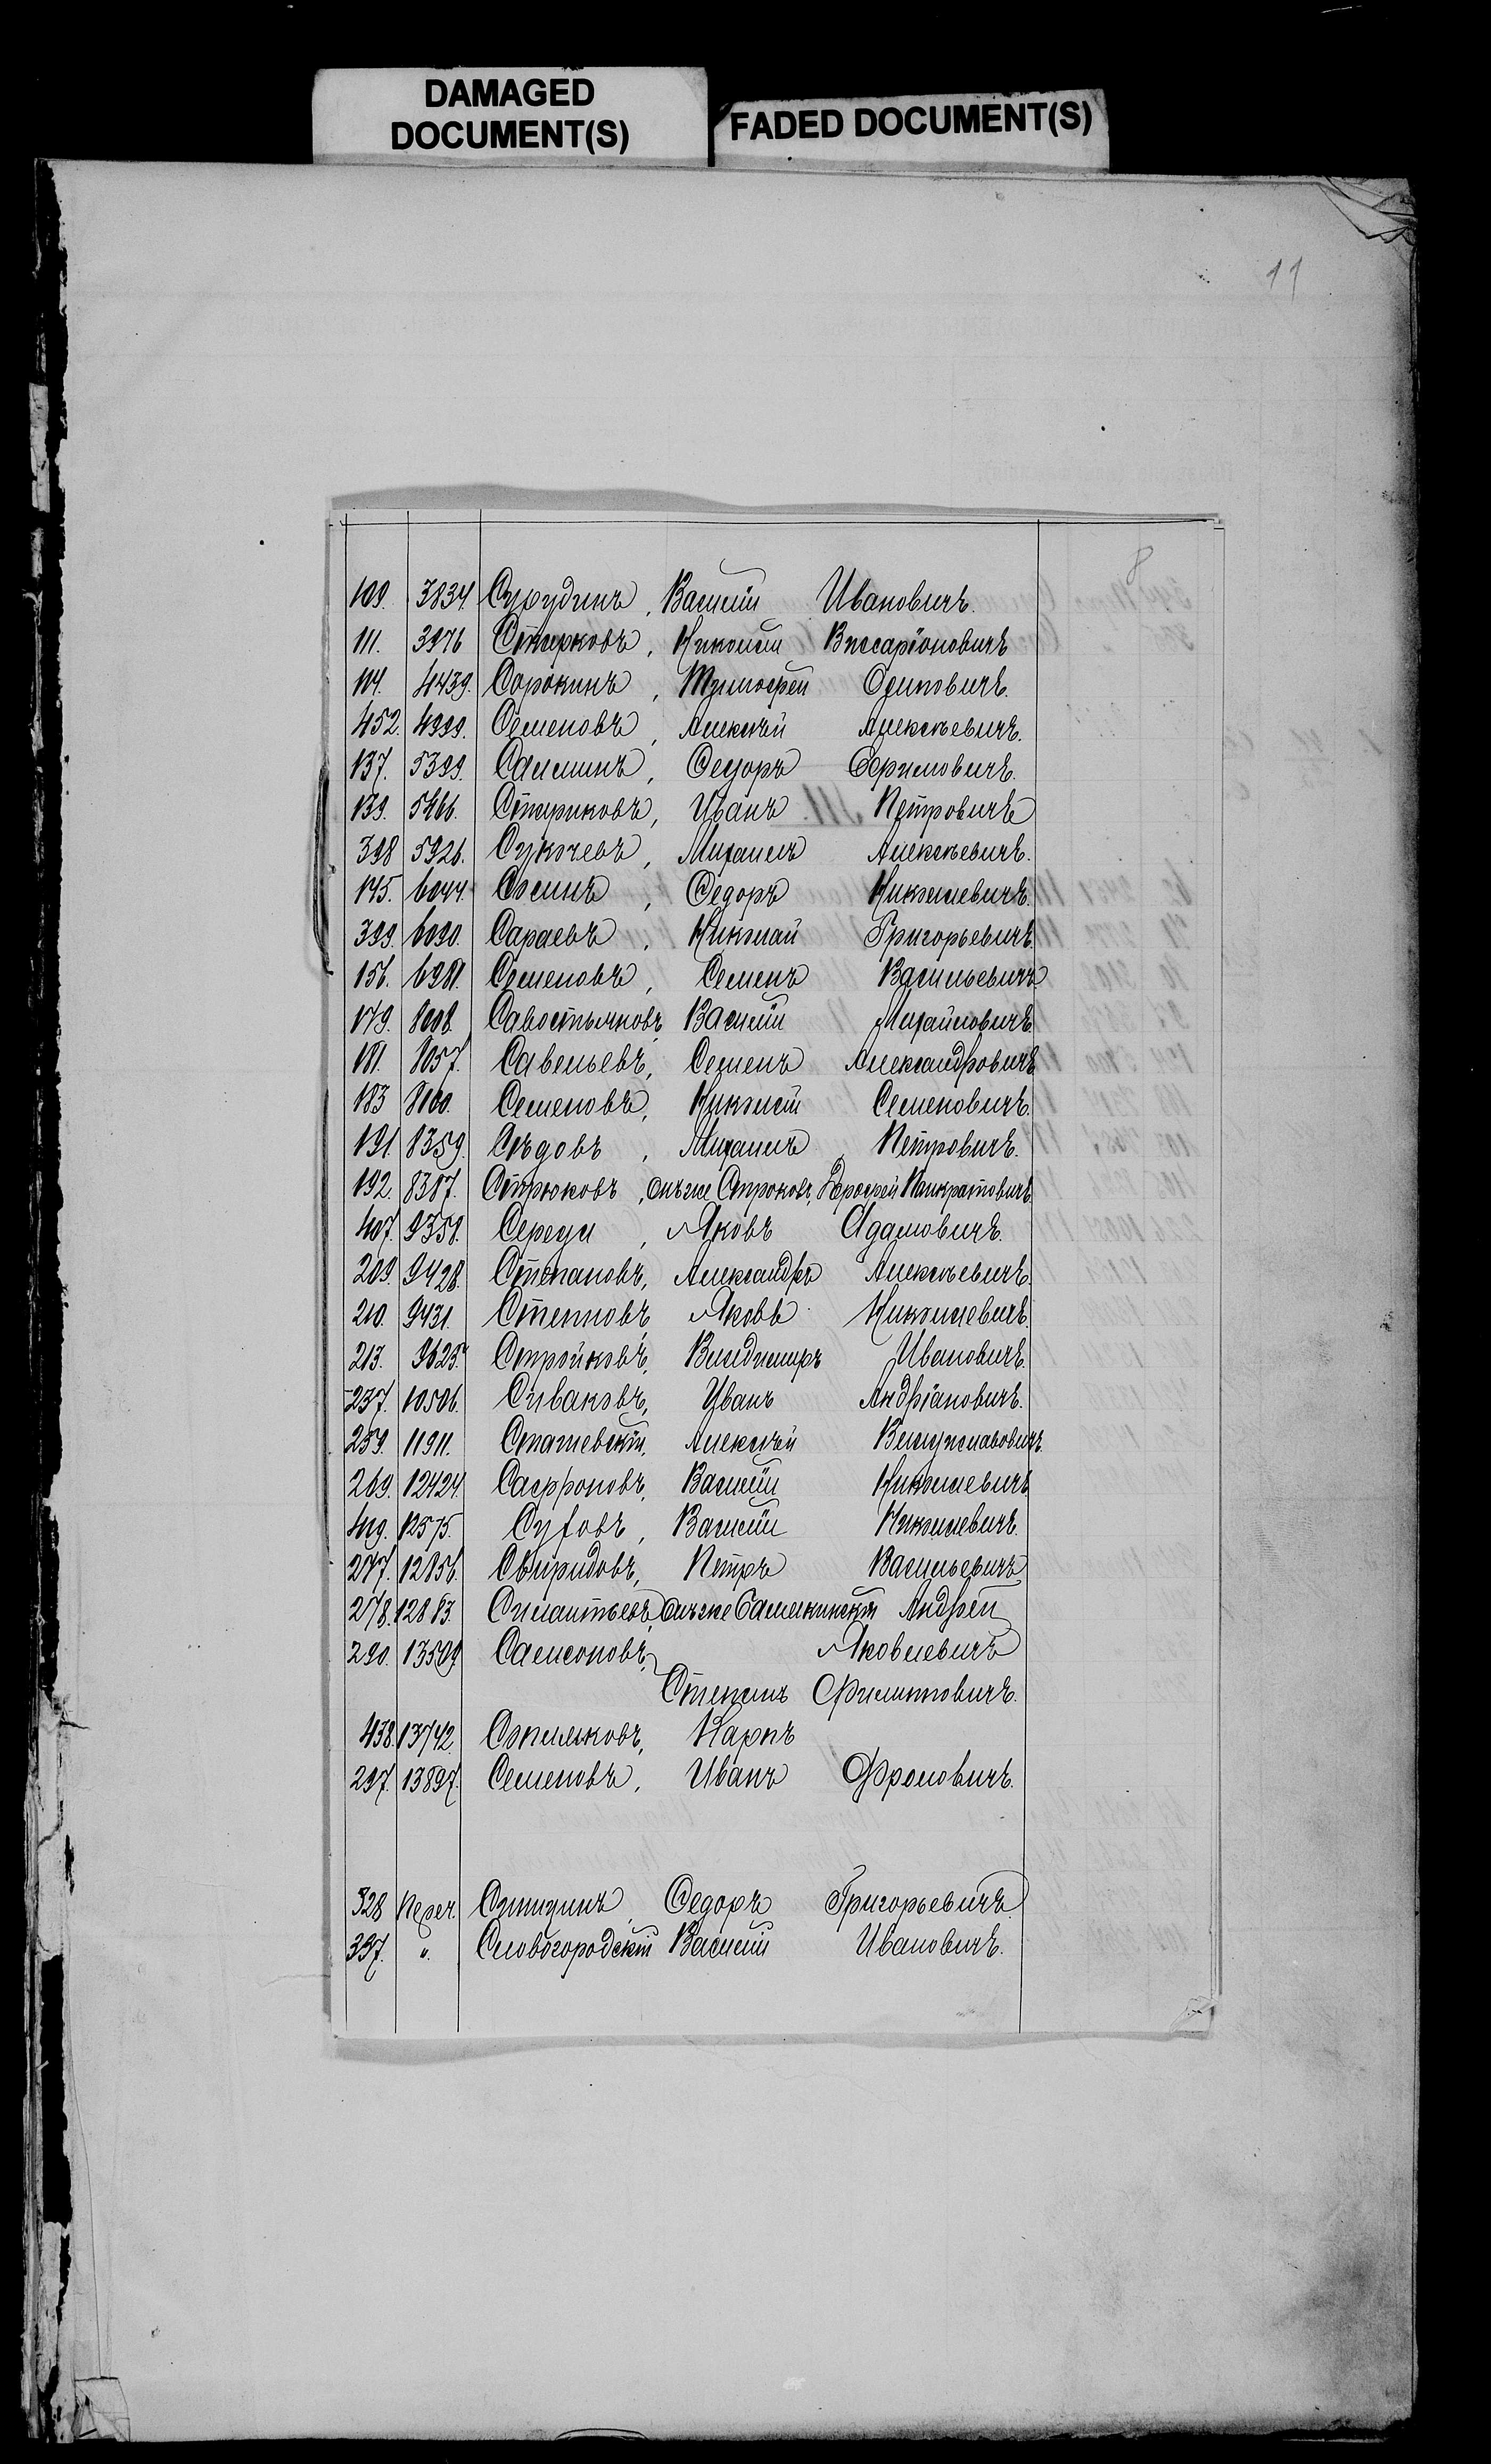 DAMAGED
DOCUMENT(S)
FADED DOCUMENT(S)
11
8
109. 3834. Сурудинъ, Василій Ивановичъ.
111. 3976 Старковъ, Николай Виссаріоновичъ
114. 4439. Сорокинъ, Тимофей Осиповичъ.
452. 4999. Семеновъ, Алексѣй Алексѣевичъ.
137. 5399. Саминъ, Федоръ Ефимовичъ.
139. 5466. Стариковъ, Иванъ Петровичъ
398 5926. Сукачевъ, Михаилъ Алексѣевичъ.
145. 6044. Сосинъ, Федоръ Николаевичъ.
399. 6090. Сараевъ, Николай Григорьевичъ.
156. 6981. Семеновъ, Семенъ Васильевичъ
179. 8008. Савостьяновъ, Василій Михайловичъ.
181. 8057. Савельевъ, Семенъ Александровичъ
183 8100. Семеновъ, Николай Семеновичъ.
191. 8359. Сѣдовъ, Михаилъ Петровичъ.
192. 8387. Стрюковъ, онъ же Строковъ, Ерофей Панкратовичъ.
407. 9358. Середа, Яковъ Адамовичъ.
209. 9428. Степановъ, Александръ Алексѣевичъ.
210. 9431. Степновъ, Яковъ Николаевичъ.
213. 9625. Стройковъ, Владиміръ Ивановичъ.
237. 10506. Сиваковъ, Иванъ Андріановичъ.
259. 11911. Сташевскій, Алексѣй
269. 12424. Сафроновъ, Василій Николаевичъ
419. 12575. Суховъ, Василій Николаевичъ.
277. 12856. Свиридовъ, Петръ Васильевичъ
278. 12883. Силантьевъ, онъ же Андрей
290. 13509 Самсоновъ, Яковлевичъ
Степанъ Филипповичъ.
438. 13742. Карпъ
297. 13897. Семеновъ, Иванъ Фроловичъ.
328 Переч. Федоръ Григорьевичъ.
397. ". Словогородскій Василій Ивановичъ.